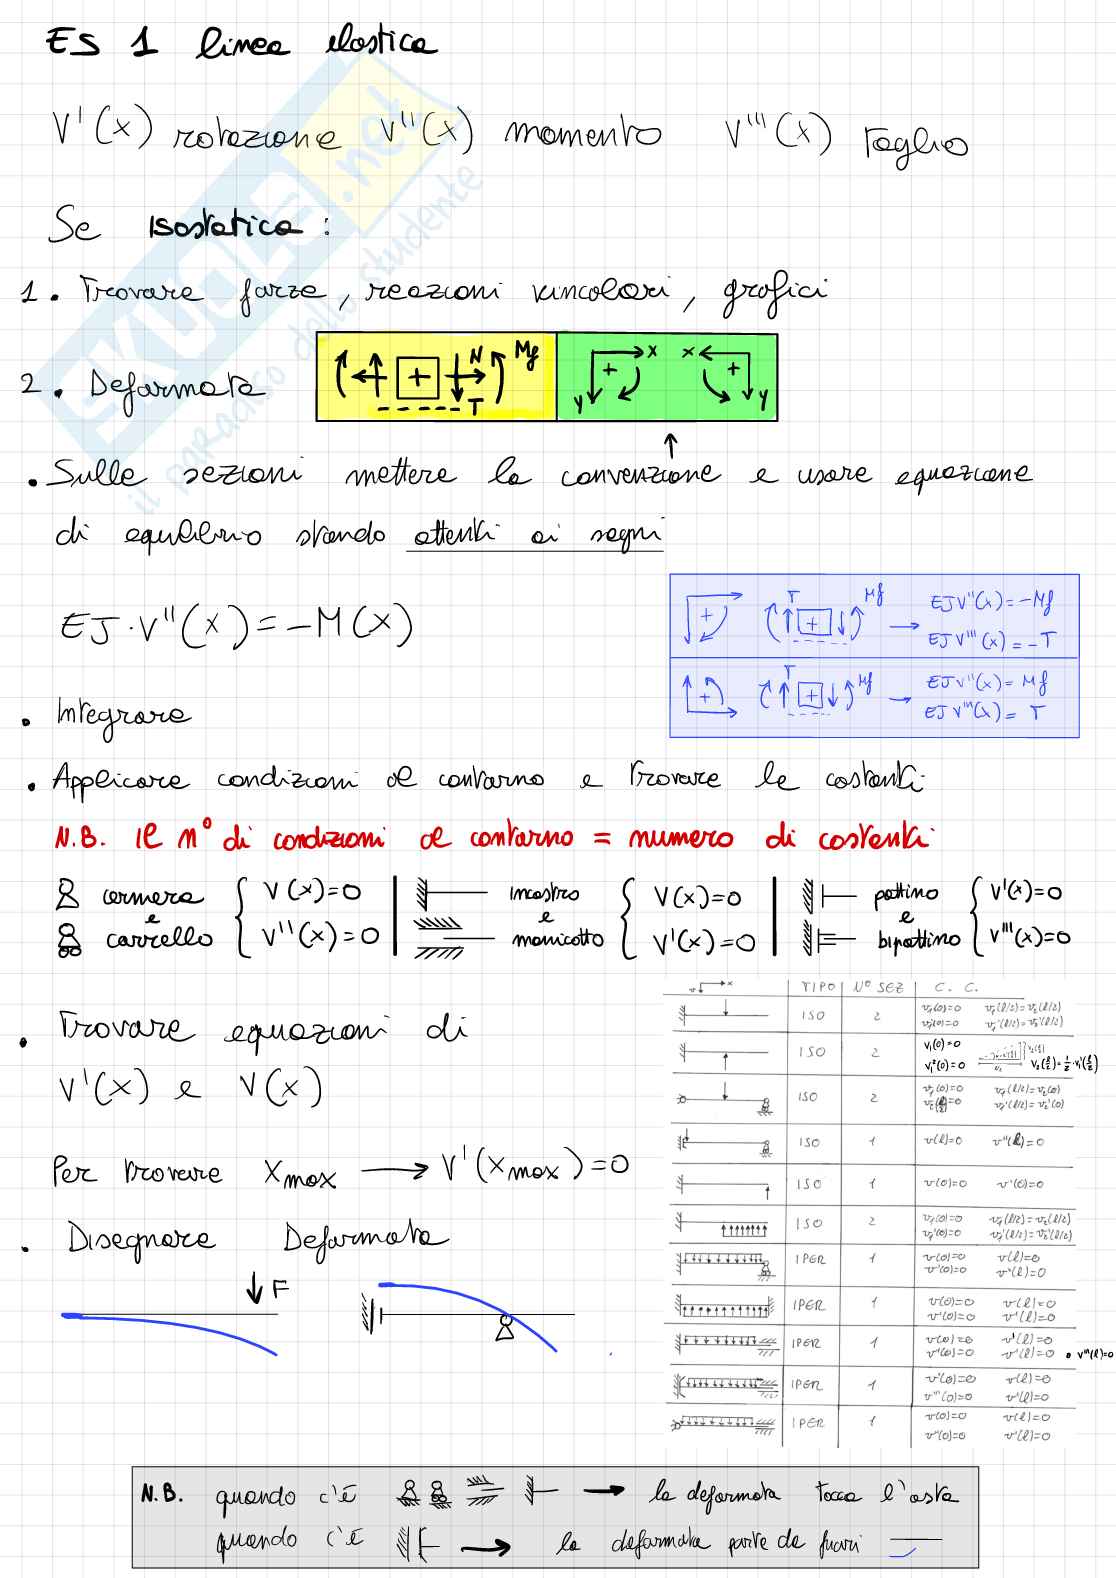 ES 1 linea elastica
V'(x) rotazione V''(x) momento V'''(x) Taglio
Se isostatica:
1. Trovare forze, reazioni vincolari, grafici
2. Deformata
N Mf
T
x x
y y
• Sulle sezioni mettere la convenzione e usare equazione
di equilibrio stando attenti ai segni
EJ·V''(x) = -M(x)
T Mf EJV''(x) = -Mf
EJV'''(x) = -T
T Mf EJV''(x) = Mf
EJV'''(x) = T
• Integrare
• Applicare condizioni al contorno e trovare le costanti
N.B. Il n° di condizioni al contorno = numero di costanti
cerniera e carrello V(x)=0 V''(x)=0
incastro e manicotto V(x)=0 V'(x)=0
pattino e bipattino V'(x)=0 V'''(x)=0
• Trovare equazioni di
V'(x) e V(x)
Per trovare xmax → V'(xmax)=0
• Disegnare Deformata
F
x TIPO N° SEZ C. C.
ISO 2 v₁(0)=0 v₁(l/2)=v₂(l/2)
v₁'(0)=0 v₁'(l/2)=v₂'(l/2)
ISO 2 V₁(0)=0
ISO 2 v₁(0)=0 v₁(l/2)=v₂(0)
v₁'(l/2)=v₂'(0)
ISO 1 v(l)=0 v''(l)=0
ISO 1 v(0)=0 v'(0)=0
ISO 2 v₁(0)=0 v₁(l/2)=v₂(l/2)
v₁'(0)=0 v₁'(l/2)=v₂'(l/2)
IPER 1 v(0)=0 v(l)=0
v'(0)=0 v''(l)=0
IPER 1 v(0)=0 v(l)=0
v'(0)=0 v'(l)=0
IPER 1 v(0)=0 v'(l)=0
v'(0)=0 v'(l)=0 • v'''(l)=0
IPER 1 v'(0)=0 v(l)=0
v'''(0)=0 v'(l)=0
IPER 1 v(0)=0 v(l)=0
v''(0)=0 v'(l)=0
N.B. quando c'è → la deformata tocca l'asta
quando c'è → la deformata parte da fuori
SKUOLA.net
il paradiso dello studente